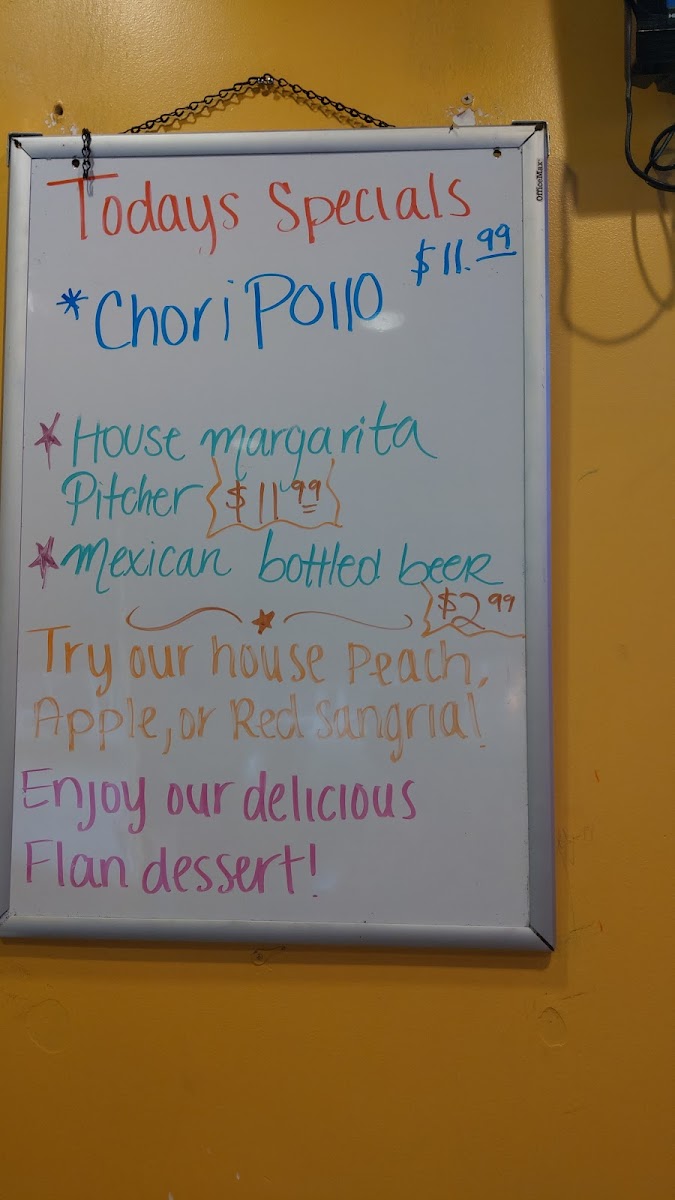 Todays Specials
$11.99
*Chori Pollo
House margarita
Pitcher $11.99
Mexican bottled beer
$2.99
Try our house Peach,
Apple, or Red Sangria!
Enjoy our delicious
Flan dessert!
OfficeMax